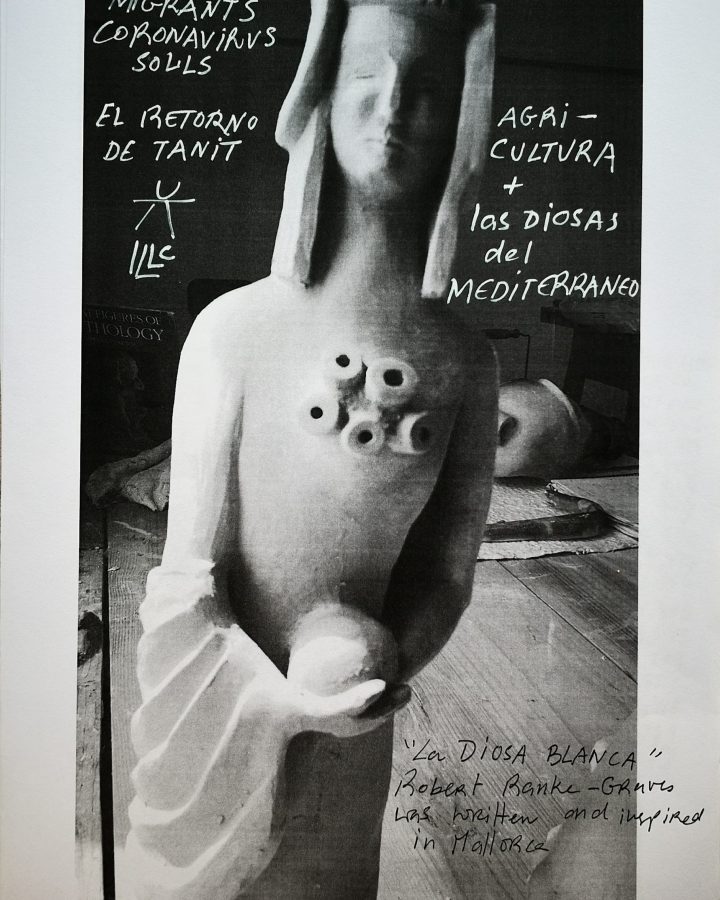 MIGRANTS
CORONAVIRUS
SOLLS
EL RETORNO
DE TANIT
AGRI-
CULTURA
+
las DIOSAS
del
MEDITERRANEO
FIGURES OF
THOLOGY
"La DIOSA BLANCA"
Robert Ranke-Graves
was written and inspired
in Mallorca